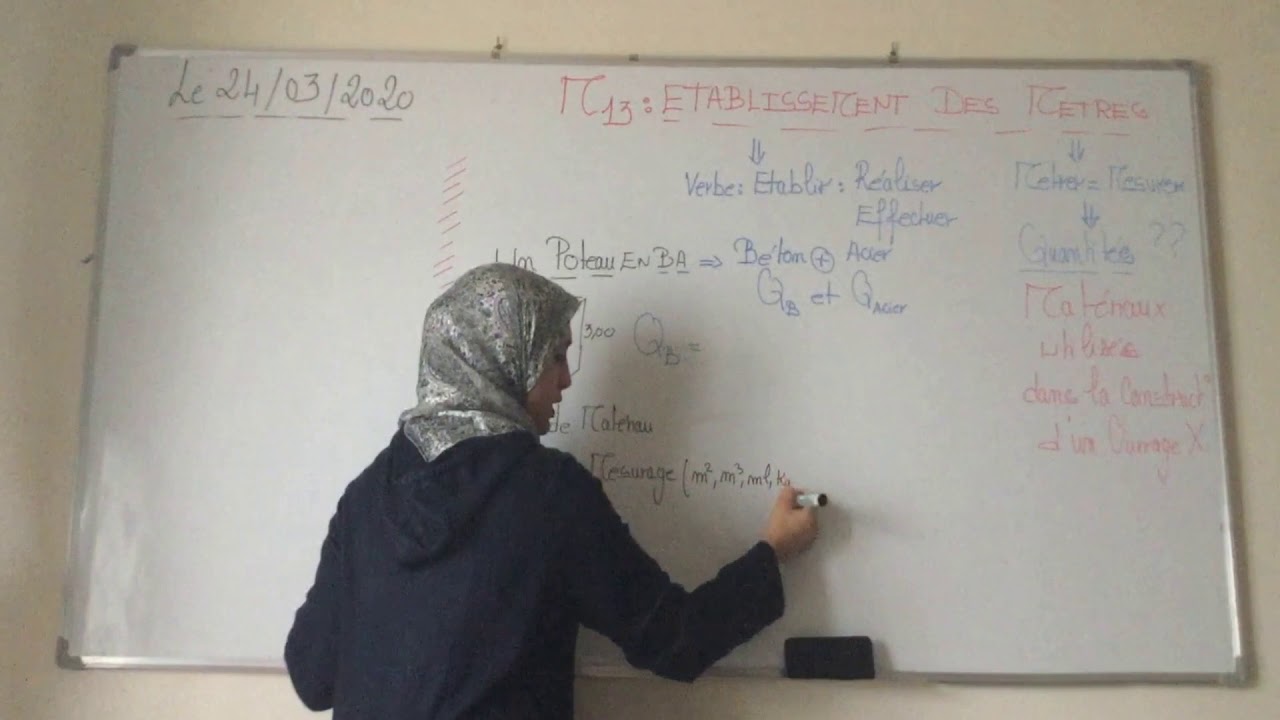 Le 24/03/2020
M13 : ETABLISSEMENT DES METRES
⇓ ⇓
Verbe : Etablir : Réaliser
Effectuer
Metrer = Mesurer
⇓
Quantités ??
Matériaux
utilisés
dans la Construct°
d'un Ouvrage X
Un Poteau EN BA ⇒ Béton ⊕ Acier
QB et QAcier
3,00 QB =
de Matériau
Mesurage (m², m³, ml, k